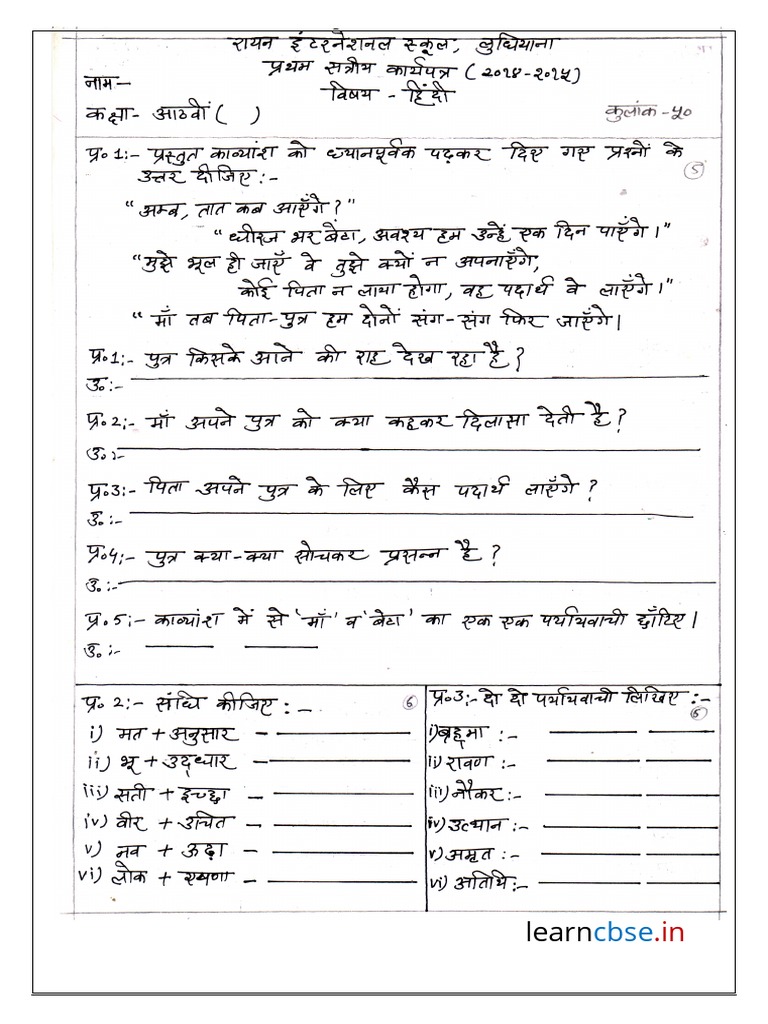 रायन इंटरनेशनल स्कूल, लुधियाना
प्रथम सत्रीय कार्यपत्र (२०१४-२०१५)
नाम:-
विषय - हिंदी
कक्षा- आठवीं ( )
कुलांक -५०
प्र॰ 1:- प्रस्तुत काव्यांश को ध्यानपूर्वक पढ़कर दिए गए प्रश्नों के
उत्तर दीजिए:-
5
"अम्ब, तात कब आएँगे?"
"धीरज धर बेटा, अवश्य हम उन्हें एक दिन पाएँगे।"
"मुझे भूल ही जाएँ वे तुझे क्यों न अपनाएँगे,
कोई पिता न लाया होगा, वह पदार्थ वे लाएँगे।"
"माँ तब पिता-पुत्र हम दोनों संग-संग फिर जाएँगे।
प्र॰1:- पुत्र किसके आने की राह देख रहा है?
उ॰:-
प्र॰2:- माँ अपने पुत्र को क्या कहकर दिलासा देती है?
उ॰:-
प्र॰3:- पिता अपने पुत्र के लिए कैस पदार्थ लाएँगे?
उ॰:-
प्र॰4:- पुत्र क्या-क्या सोचकर प्रसन्न है?
उ॰:-
प्र॰5:- काव्यांश में से 'माँ' व 'बेटा' का एक एक पर्यायवाची छाँटिए।
उ॰:-
प्र॰ 2:- संधि कीजिए:-
6
i) मत + अनुसार -
ii) भू + उद्धार -
iii) सती + इच्छा -
iv) वीर + उचित -
v) नव + ऊढ़ा -
vi) लोक + एषणा -
प्र॰3:- दो दो पर्यायवाची लिखिए:-
6
i) ब्रह्मा:-
ii) रावण:-
iii) नौकर:-
iv) उत्थान:-
v) अमृत:-
vi) अतिथि:-
learncbse.in